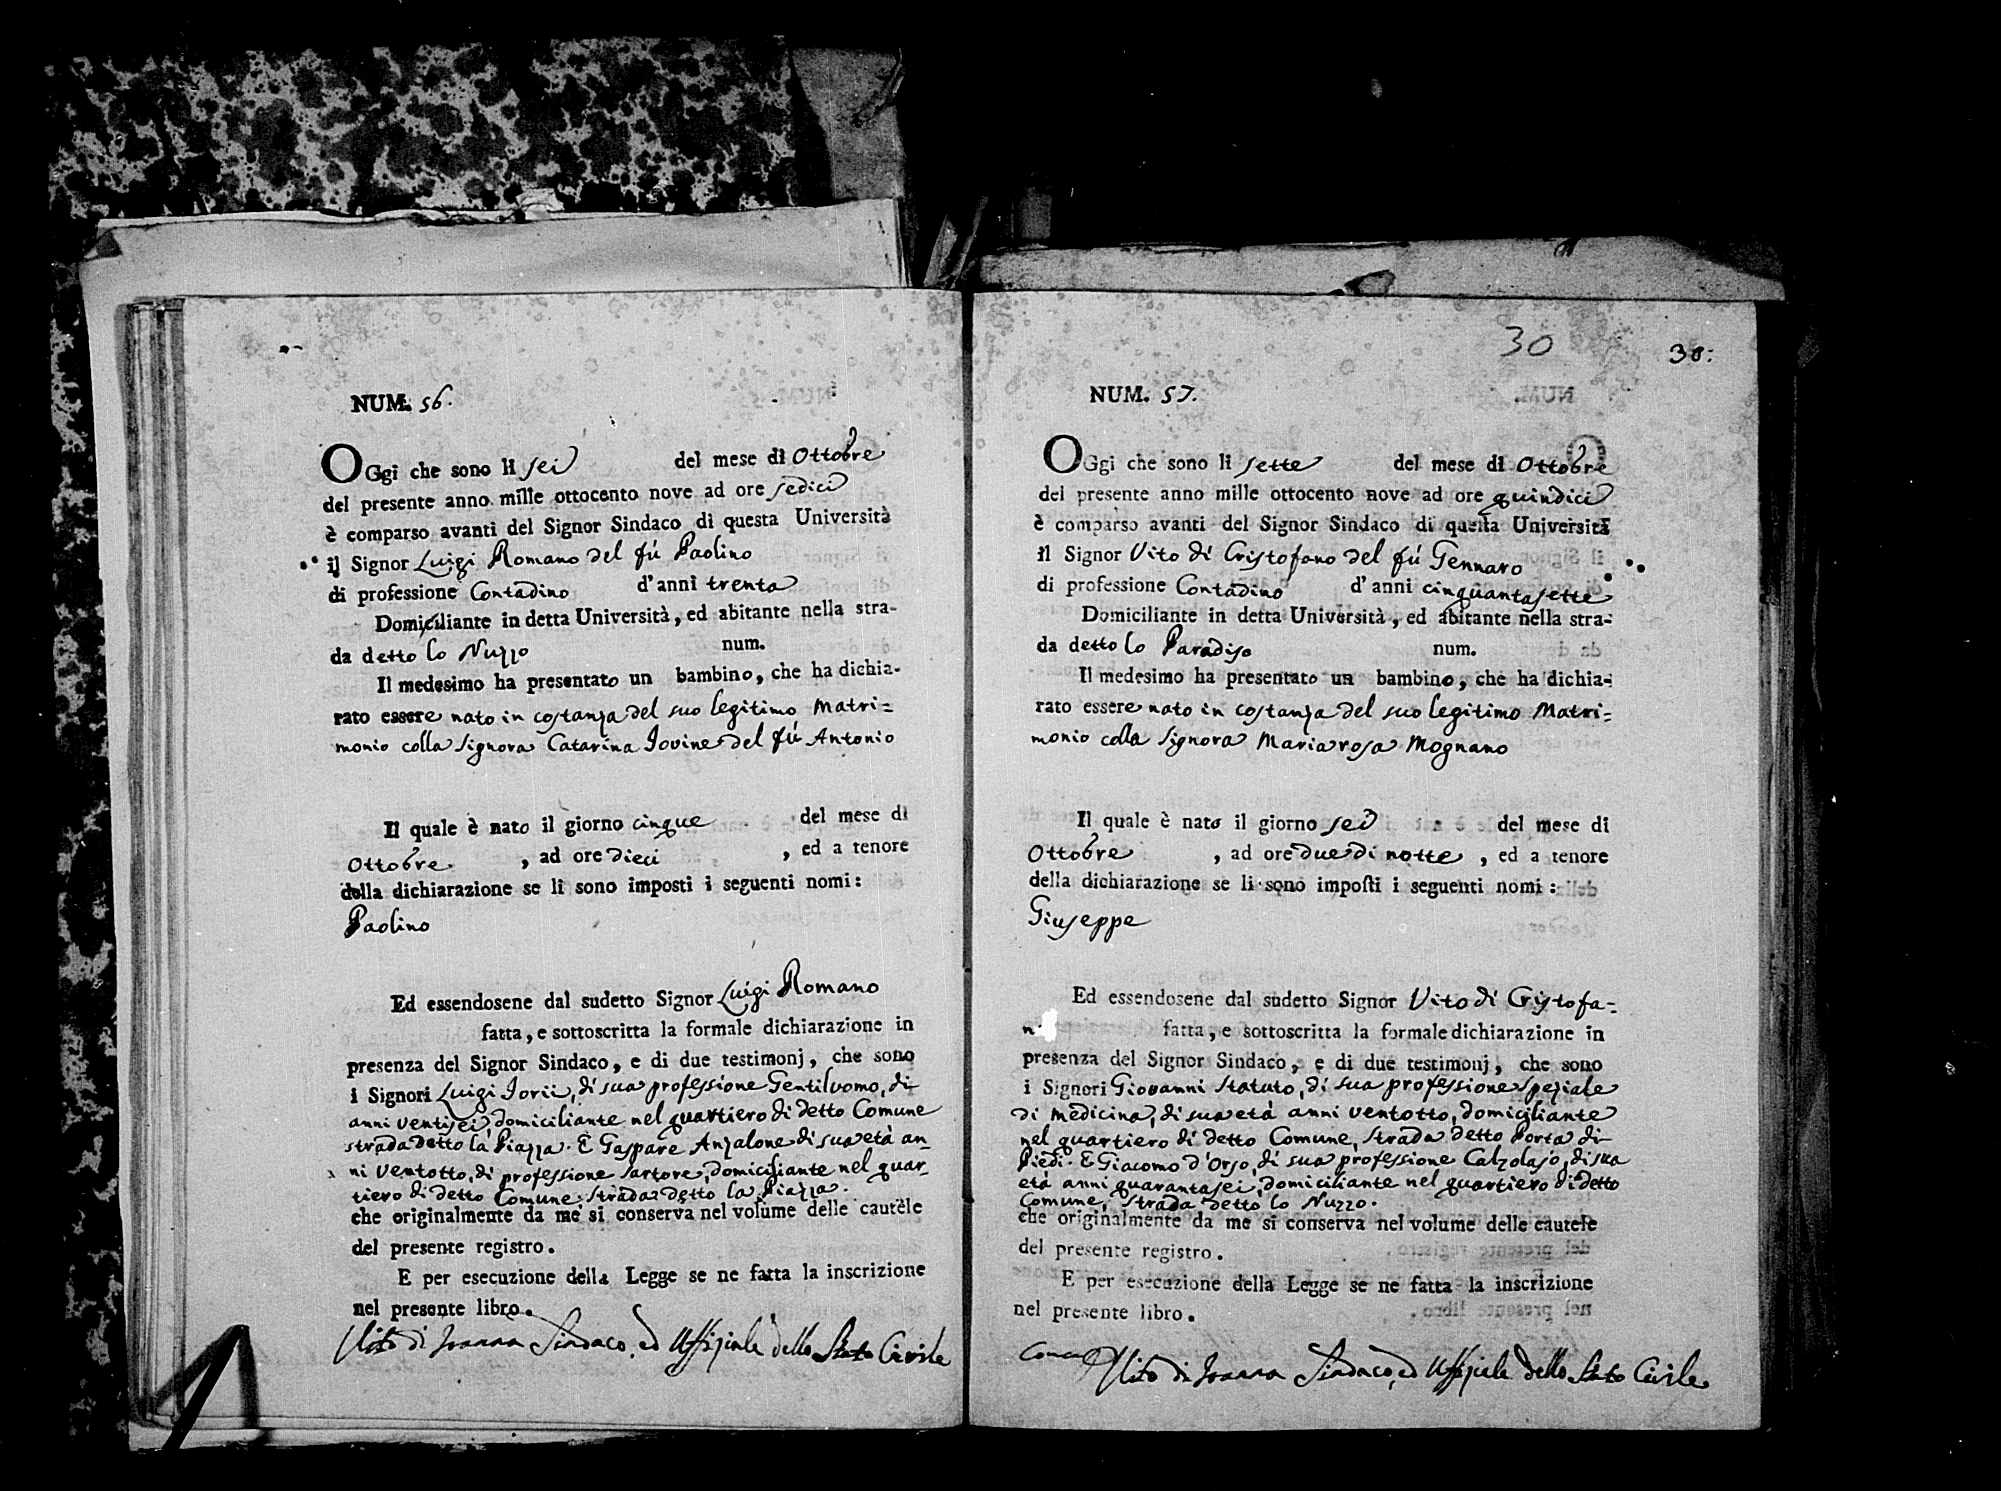 NUM. 56.
OGgi che sono li sei del mese di Ottobre
del presente anno mille ottocento nove ad ore sedici
è comparso avanti del Signor Sindaco di questa Università
il Signor Luigi Romano del fú Paolino
di professione Contadino d'anni trenta
Domiciliante in detta Università, ed abitante nella stra-
da detto lo Nuzzo num.
Il medesimo ha presentato un bambino, che ha dichia-
rato essere nato in costanza del suo legitimo Matri=
monio colla Signora Catarina Iovine del fú Antonio
Il quale è nato il giorno cinque del mese di
Ottobre, ad ore dieci, ed a tenore
della dichiarazione se li sono imposti i seguenti nomi:
Paolino
Ed essendosene dal sudetto Signor Luigi Romano
fatta, e sottoscritta la formale dichiarazione in
presenza del Signor Sindaco, e di due testimonj, che sono
i Signori Luigi Iorii, di sua professione Gentiluomo, di
anni ventisei, domiciliante nel quartiero di detto Comune
strada detto la Piazza. E Gaspare Anzalone di sua età an-
ni ventotto, di professione sartore, domiciliante nel quar-
tiero di detto Comune, strada detto la Piazza.
che originalmente da me si conserva nel volume delle cautele
del presente registro.
E per esecuzione della Legge se ne fatta la inscrizione
nel presente libro.
Vito di Ioanna Sindaco, ed Uffiziale dello Stato Civile
30
30:
NUM. 57.
OGgi che sono li sette del mese di Ottobre
del presente anno mille ottocento nove ad ore quindici
è comparso avanti del Signor Sindaco di questa Università
il Signor Vito di Cristofano del fú Gennaro
di professione Contadino d'anni cinquantasette
Domiciliante in detta Università, ed abitante nella stra-
da detto lo Paradiso num.
Il medesimo ha presentato un bambino, che ha dichia-
rato essere nato in costanza del suo legitimo Matri=
monio colla Signora Mariarosa Mognano
Il quale è nato il giorno sei del mese di
Ottobre, ad ore due di notte, ed a tenore
della dichiarazione se li sono imposti i seguenti nomi:
Giuseppe
Ed essendosene dal sudetto Signor Vito di Cristofa=
n. fatta, e sottoscritta la formale dichiarazione in
presenza del Signor Sindaco, e di due testimonj, che sono
i Signori Giovanni Statuto, di sua professione speziale
di medicina, di sua età anni ventotto, domiciliante
nel quartiero di detto Comune, strada detto Porta di
Piedi. E Giacomo d'Orso, di sua professione Calzolajo, di sua
età anni quarantasei, domiciliante nel quartiero di detto
Comune, strada detto lo Nuzzo.
che originalmente da me si conserva nel volume delle cautele
del presente registro.
E per esecuzione della Legge se ne fatta la inscrizione
nel presente libro.
Vito di Ioanna Sindaco, ed Uffiziale dello Stato Civile